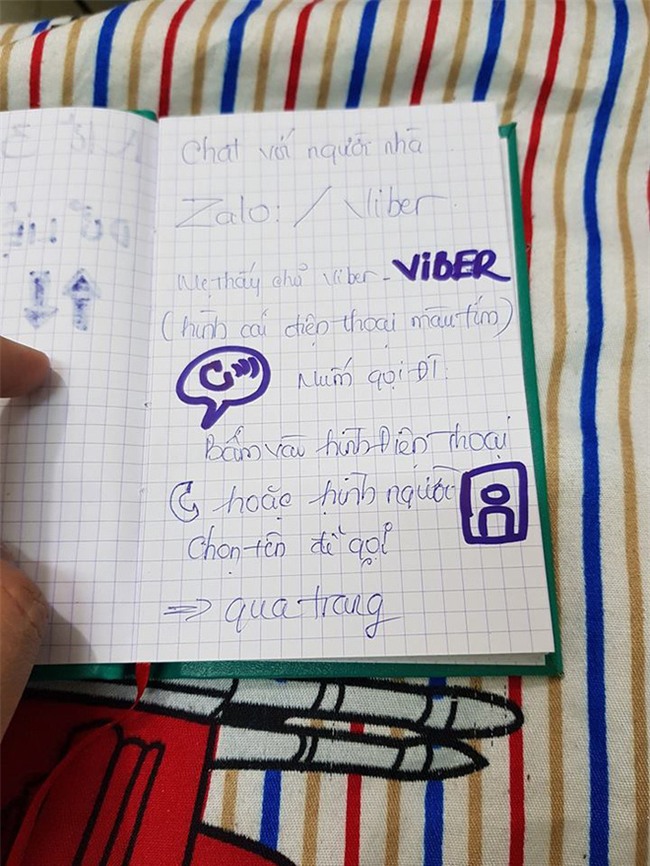 Chat với người nhà
Zalo: / Viber
Mẹ thấy chữ Viber - VIBER
(hình cái điện thoại màu tím)
Muốn gọi ĐT:
Bấm vào hình Điện thoại
hoặc hình người
Chọn tên để gọi
⇒ qua trang